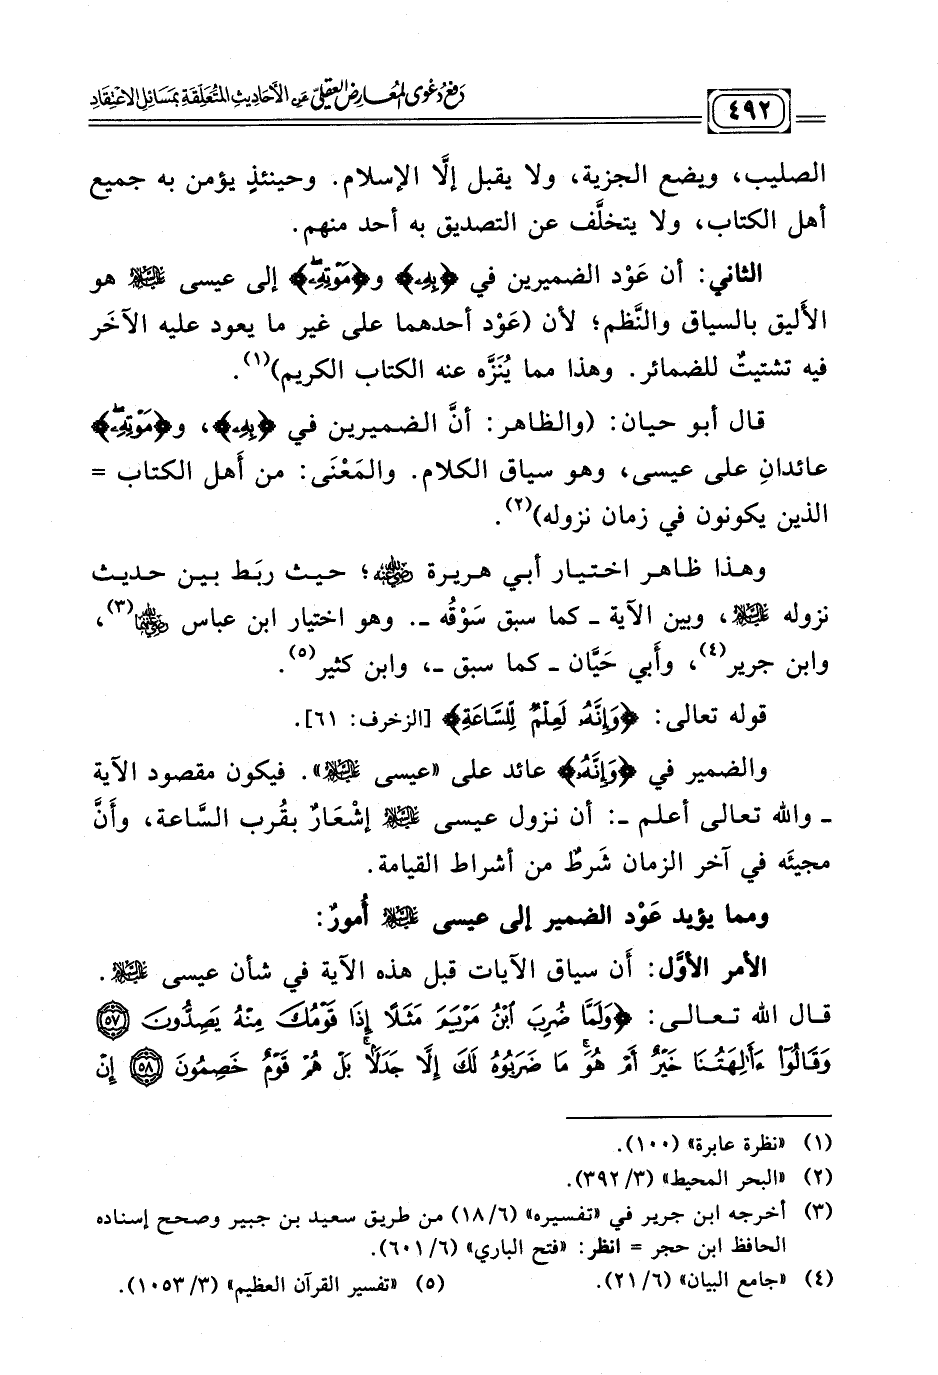 ٤٩٢
دفع دعوى المعارض العقلي عن الأحاديث المتعلقة بمسائل الاعتقاد
الصليب، ويضع الجزية، ولا يقبل إلَّا الإسلام. وحينئذٍ يؤمن به جميع
أهل الكتاب، ولا يتخلَّف عن التصديق به أحد منهم.
الثاني: أن عَوْد الضميرين في ﴿بِهِۦ﴾ و﴿مَوْتِهِۦ﴾ إلى عيسى عليه السلام هو
الأليق بالسياق والنَّظم؛ لأن (عَوْد أحدهما على غير ما يعود عليه الآخَر
فيه تشتيتٌ للضمائر. وهذا مما يُنَزَّه عنه الكتاب الكريم)(١).
قال أبو حيان: (والظاهر: أنَّ الضميرين في ﴿بِهِۦ﴾، و﴿مَوْتِهِۦ﴾
عائدانِ على عيسى، وهو سياق الكلام. والمَعْنَى: من أَهل الكتاب =
الذين يكونون في زمان نزوله)(٢).
وهذا ظاهر اختيار أبي هريرة رضي الله عنه؛ حيث ربَط بين حديث
نزوله عليه السلام، وبين الآية ـ كما سبق سَوْقُه ـ. وهو اختيار ابن عباس رضي الله عنهما(٣)،
وابن جرير(٤)، وأَبي حَيَّان ـ كما سبق ـ، وابن كثير(٥).
قوله تعالى: ﴿وَإِنَّهُۥ لَعِلْمٌ لِّلسَّاعَةِ﴾ [الزخرف: ٦١].
والضمير في ﴿وَإِنَّهُۥ﴾ عائد على «عيسى عليه السلام». فيكون مقصود الآية
ـ والله تعالى أعلم ـ: أن نزول عيسى عليه السلام إشْعَارٌ بقُرب السَّاعة، وأَنَّ
مجيئَه في آخر الزمان شَرطٌ من أشراط القيامة.
ومما يؤيد عَوْد الضمير إلى عيسى عليه السلام أُمورٌ:
الأمر الأوَّل: أَن سياق الآيات قبل هذه الآية في شأن عيسى عليه السلام.
قال الله تعالى: ﴿وَلَمَّا ضُرِبَ ٱبْنُ مَرْيَمَ مَثَلًا إِذَا قَوْمُكَ مِنْهُ يَصِدُّونَ ٥٧
وَقَالُوٓا۟ ءَأَٰلِهَتُنَا خَيْرٌ أَمْ هُوَ ۚ مَا ضَرَبُوهُ لَكَ إِلَّا جَدَلًۢا ۚ بَلْ هُمْ قَوْمٌ خَصِمُونَ ٥٨ إِنْ
(١) «نظرة عابرة» (١٠٠).
(٢) «البحر المحيط» (٣/ ٣٩٢).
(٣) أخرجه ابن جرير في «تفسيره» (٦/ ١٨) من طريق سعيد بن جبير وصحح إسناده
الحافظ ابن حجر = انظر: «فتح الباري» (٦/ ٦٠١).
(٤) «جامع البيان» (٦/ ٢١). (٥) «تفسير القرآن العظيم» (٣/ ١٠٥٣).